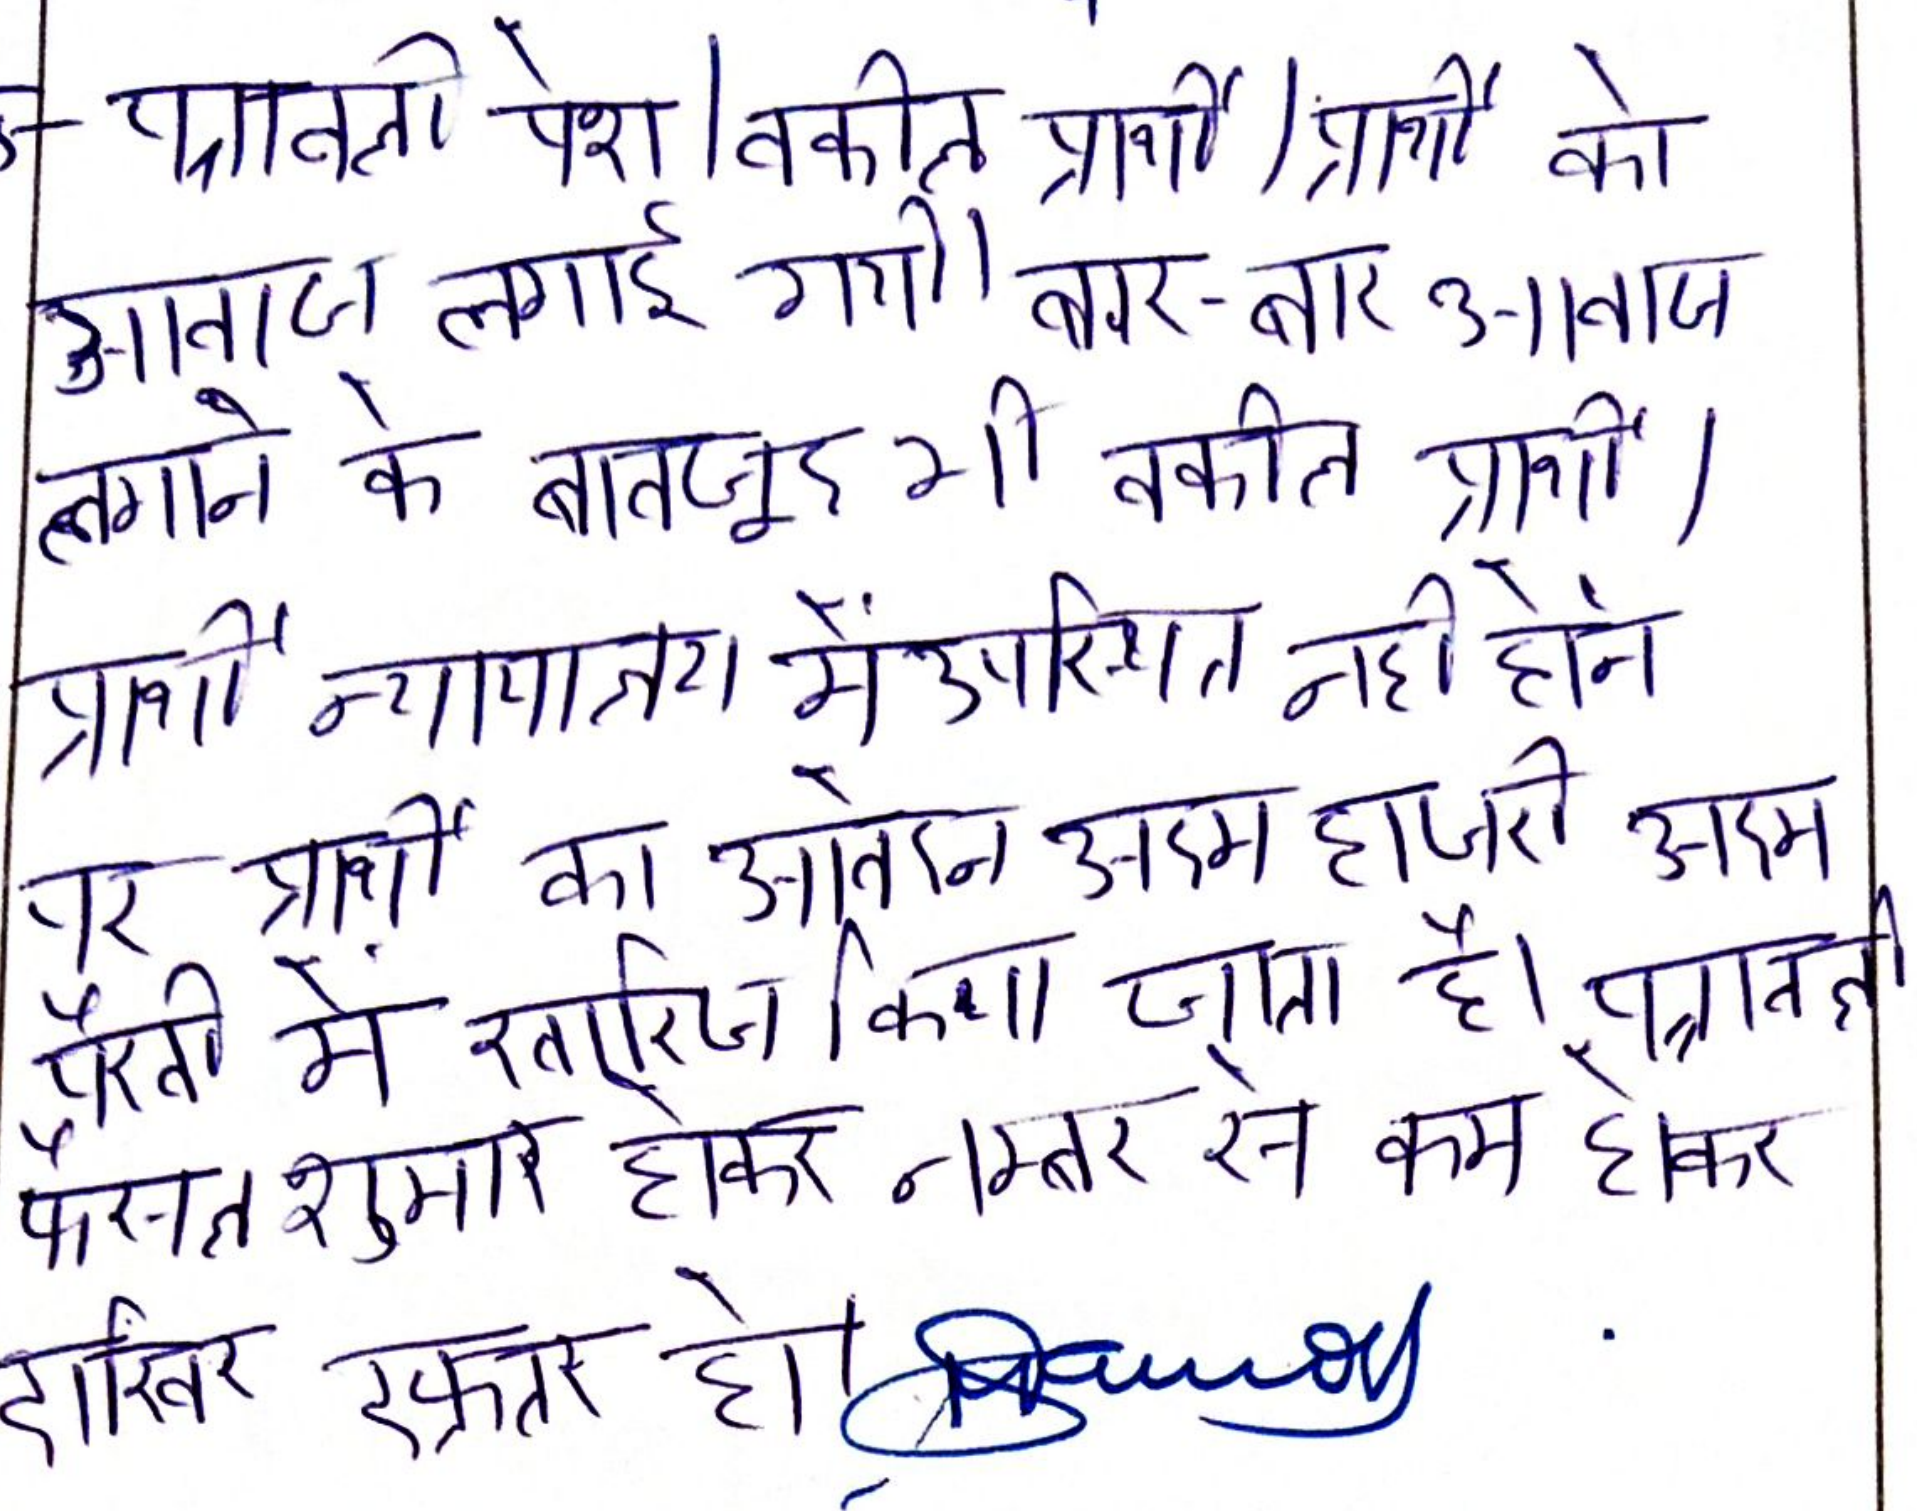 पत्रावली पेश। वकील प्रार्थी / प्रार्थी को
आवाज लगाई गयी। बार-बार आवाज
लगाने के बावजूद भी वकील प्रार्थी /
प्रार्थी न्यायालय में उपस्थित नही होने
पर प्रार्थी का आवेदन अदम हाजरी अदम
पैरवी में खारिज किया जाता है। पत्रावली
फैसल शुमार होकर नम्बर से कम होकर
दाखिर दफ्तर हो।